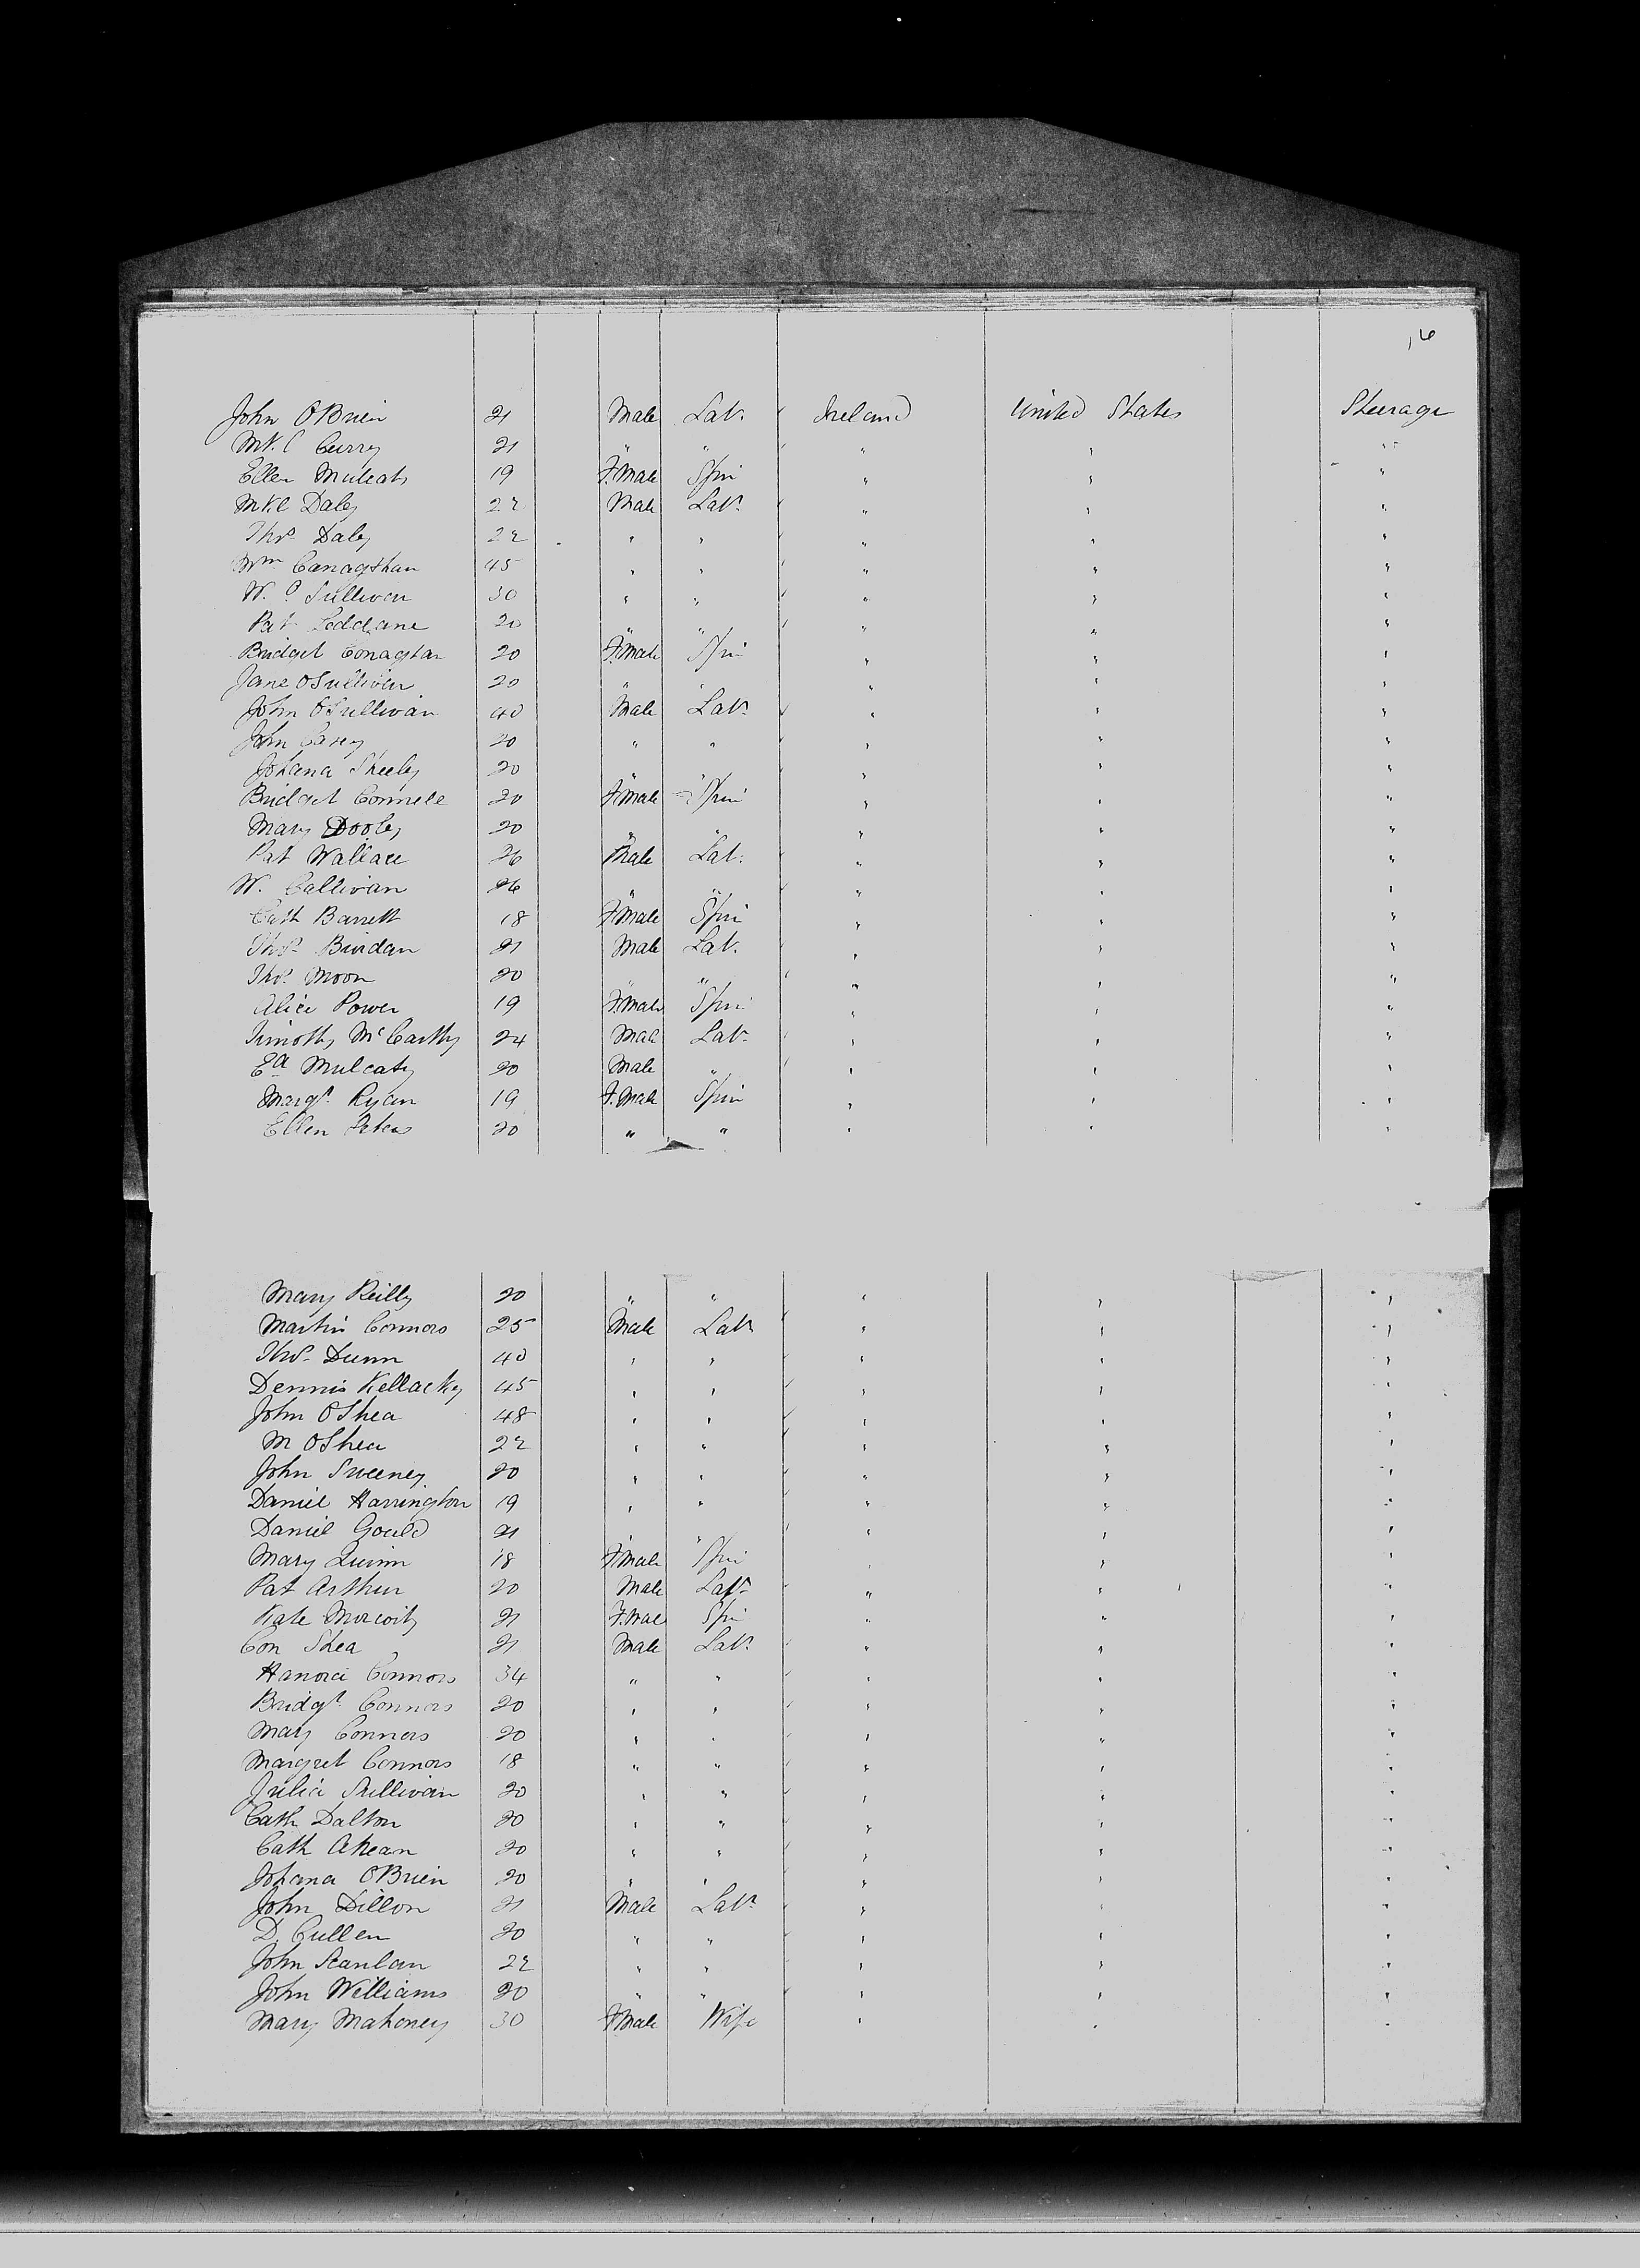 16
John OBrien 21 Male Labr Ireland United States Steerage
Mkl Curry 21 " " " " "
Ellen 19 F.Male Spin " " "
Mkl Daley 22 Male Labr " " "
Thos Daley 22 " " " " "
Wm Canaghan 45 " " " " "
W. O Sullivan 30 " " " " "
Pat Leddane 20 " " " " "
Bridget Conaghan 20 F.Male Spin " " "
Jane OSullivan 20 " " " " "
John OSullivan 40 Male Labr " " "
John Casey 20 " " " " "
Johana Sheehy 20 " " " " "
Bridget Connell 20 F.Male Spin " " "
Mary Dooley 20 " " " " "
Pat Wallace 26 Male Lab. " " "
W. Callivan 26 " " " " "
Cath Barrett 18 F.Male Spin " " "
Thos Burdan 21 Male Lab. " " "
Thos Moon 20 " " " " "
Alice Power 19 F.Male Spin " " "
Timothy McCarthy 24 Male Labr " " "
Ed Mulcaty 20 Male " " " "
Margt Ryan 19 F.Male Spin " " "
Ellen Peters 20 " " " " "
Mary Reilly 20 " " " " "
Martin Connors 25 Male Labr " " "
Thos Dunn 40 " " " " "
Dennis Kellacky 45 " " " " "
John OShea 48 " " " " "
M OShea 22 " " " " "
John Sweeney 20 " " " " "
Daniel Harrington 19 " " " " "
Daniel Gould 21 " " " " "
Mary Quinn 18 F.Male Spin " " "
Pat Arthur 20 Male Labr " " "
Kate 21 F.Male Spin " " "
Con Shea 21 Male Labr " " "
Hanora Connors 34 " " " " "
Bridgt Connors 20 " " " " "
Mary Connors 20 " " " " "
Margret Connors 18 " " " " "
Julia Sullivan 20 " " " " "
Cath Dalton 20 " " " " "
Cath Ahean 20 " " " " "
Johana OBrien 20 " " " " "
John Dillon 21 Male Labr " " "
D. Cullen 20 " " " " "
John Scanlan 22 " " " " "
John Williams 20 " " " " "
Mary Mahoney 30 F.Male Wife " " "